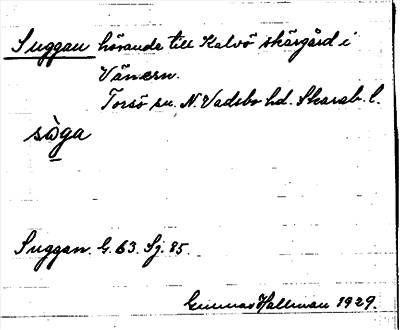 Suggan hörande till Kalvö skärgård i
Vänern.
Torsö sn. N. Vadsbo hd. Skarab. l.
sòga
Suggan. G. 63. Sj. 85.
Gunnar Hallman 1929.